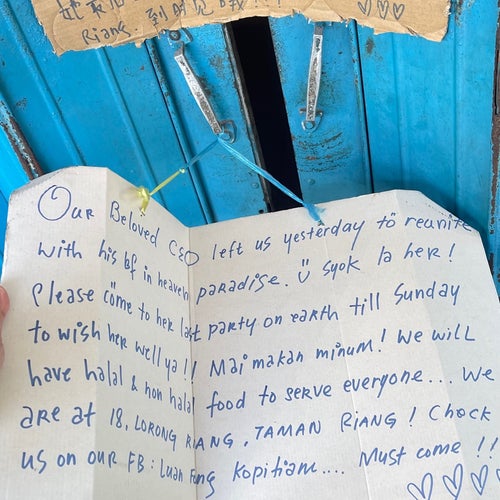 Riang. 到时见哦!!!
Our Beloved CSO left us yesterday to reunite
with his bf in heaven paradise. Ü syok la her!
Please come to her last party on earth till Sunday
to wish her well ya!! Mai makan minum! We will
have halal & non halal food to serve everyone... We
are at 18, LORONG RIANG, TAMAN RIANG! Chock
us on our FB: Luan Fong Kopitiam.... Must come !!